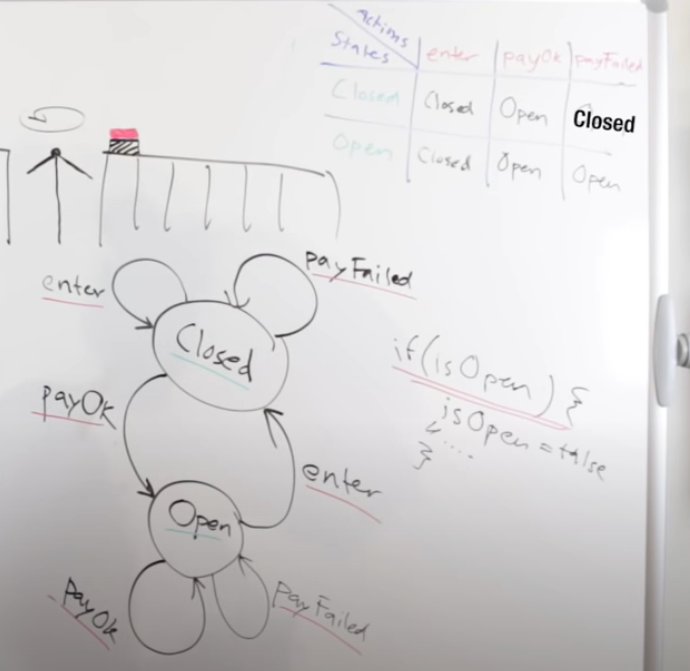 actions
States
enter
payOk
payFailed
Closed
Closed
Open
Closed
Open
Closed
Open
Open
enter
payFailed
Closed
payOk
enter
Open
payOk
PayFailed
if(isOpen) {
isOpen = false
....
}